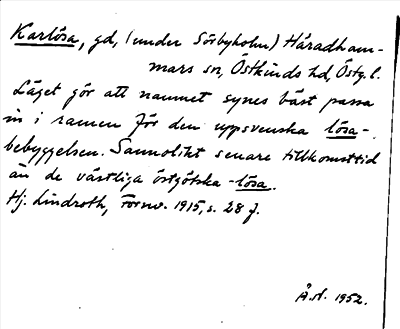 Karlösa, gd, (under Sörbyholm) Häradsham-
mars sn, Östkinds hd, Östg. l.
Läget gör att namnet synes bäst passa
in i ramen för den uppsvenska lösa-
bebyggelsen. Sannolikt senare tillkomsttid
än de västliga östgötska -lösa.
Hj. Lindroth, Fornv. 1915, s. 28 f.
Å. st. 1952.